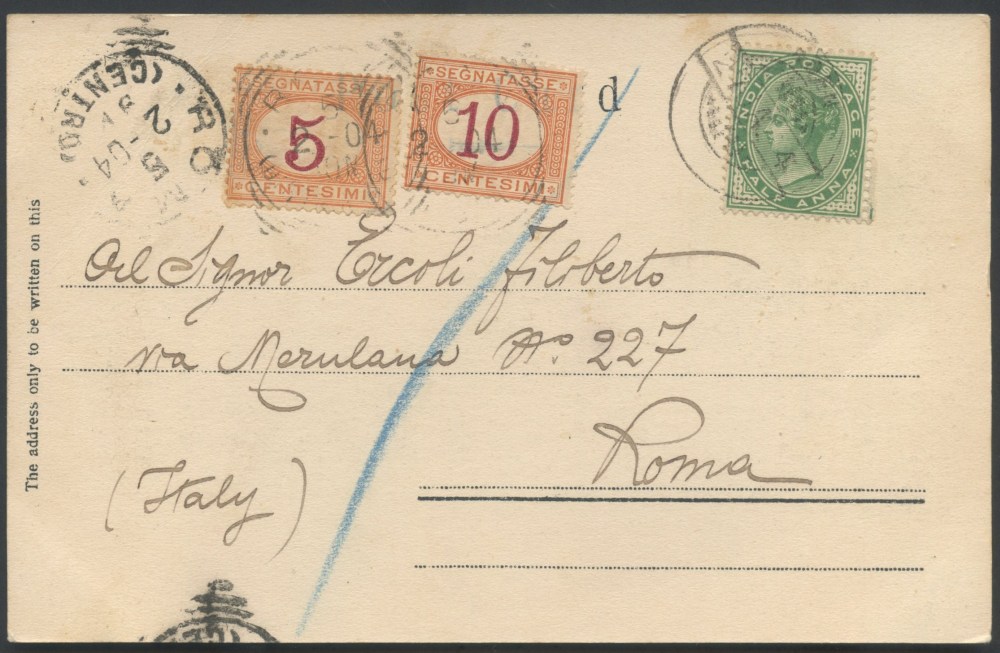 ROMA
(CENTRO)
2
5-04
SEGNATASSE
5
CENTESIMI
SEGNATASSE
10
CENTESIMI
d
INDIA POSTAGE
HALF ANNA
Al Signor Ercoli Filiberto
via Merulana No 227
Roma
(Italy)
The address only to be written on this